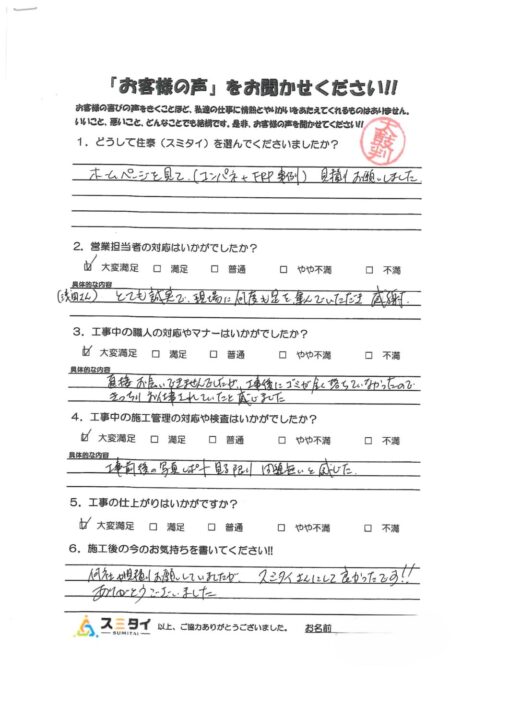 「お客様の声」をお聞かせください!!
お客様の喜びの声をきくことほど、私達の仕事に情熱とやりがいをあたえてくれるものはありません。
いいこと、悪いこと、どんなことでも結構です。是非、お客様の声を聞かせてください!!
1．どうして住泰（スミタイ）を選んでくださいましたか？
ホームページを見て、(コンパネ + FRP 事例) 見積りお願いしました
2．営業担当者の対応はいかがでしたか？
☑ 大変満足 □ 満足 □ 普通 □ やや不満 □ 不満
具体的な内容
とても誠実で、現場に何度も足を運んでいただき 感謝.
3．工事中の職人の対応やマナーはいかがでしたか？
☑ 大変満足 □ 満足 □ 普通 □ やや不満 □ 不満
具体的な内容
直接お会いできませんでしたが、工事後にゴミが全く落ちていなかったので
きっちりお仕事されていたと感じました
4．工事中の施工管理の対応や検査はいかがでしたか？
☑ 大変満足 □ 満足 □ 普通 □ やや不満 □ 不満
具体的な内容
工事前後の写真レポート見る限り 問題無いと感じた.
5．工事の仕上がりはいかがですか？
☑ 大変満足 □ 満足 □ 普通 □ やや不満 □ 不満
6．施工後の今のお気持ちを書いてください!!
何社か見積りお願いしていましたが、 スミタイさんにして良かったです!!
ありがとうございました
スミタイ SUMITAI 以上、ご協力ありがとうございました。 お名前